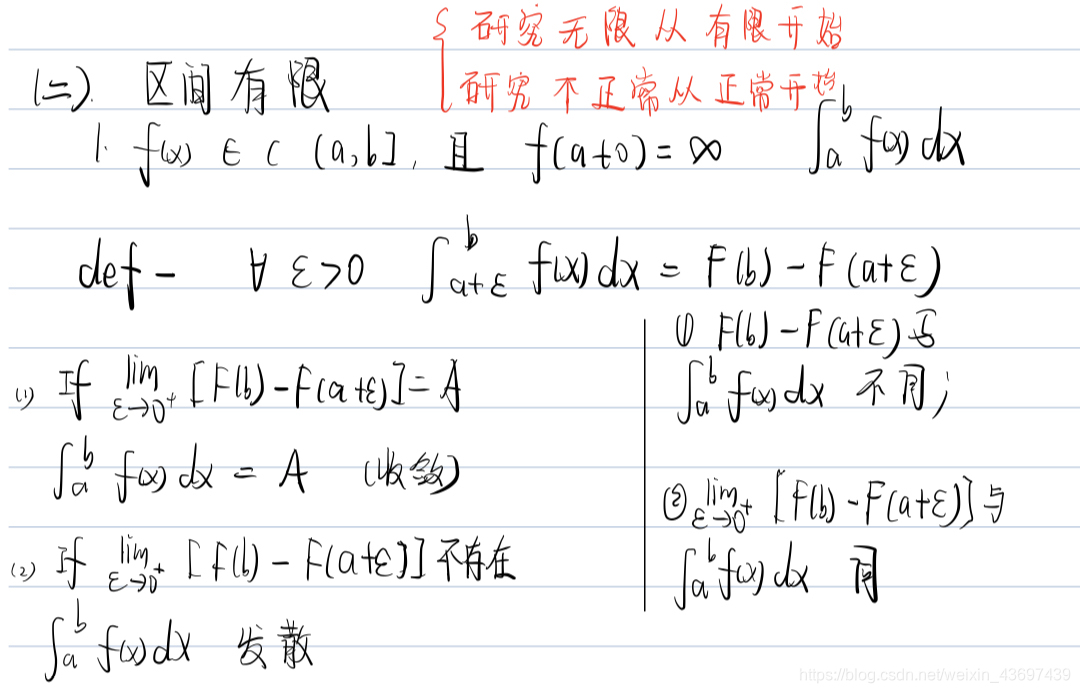 研究无限从有限开始
研究不正常从正常开始
(二). 区间有限
1. f(x) ∈ C (a,b], 且 f(a+0)=∞ ∫_a^b f(x)dx
def - ∀ ε>0 ∫_{a+ε}^b f(x)dx = F(b)-F(a+ε)
(1) If lim_{ε→0⁺} [F(b)-F(a+ε)]=A
∫_a^b f(x)dx = A (收敛)
(2) If lim_{ε→0⁺} [F(b)-F(a+ε)]不存在
∫_a^b f(x)dx 发散
① F(b)-F(a+ε)与
∫_a^b f(x)dx 不同;
② lim_{ε→0⁺} [F(b)-F(a+ε)]与
∫_a^b f(x)dx 同
https://blog.csdn.net/weixin_43697439